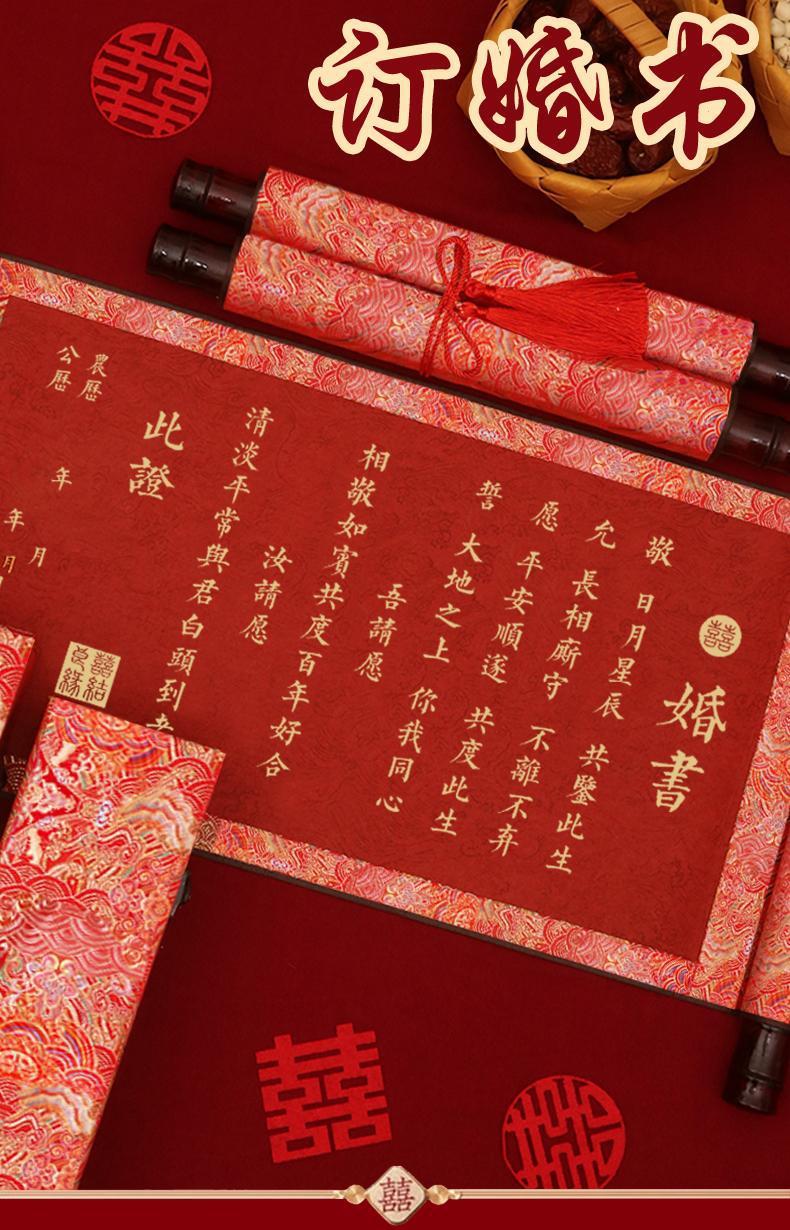 订婚书
囍
囍
婚書
敬 日月星辰 共鑒此生
允 長相廝守 不離不弃
愿 平安順遂 共度此生
誓 大地之上 你我同心
吾請愿
相敬如賓共度百年好合
汝請愿
清淡平常與君白頭到
此證
農歷 年 月
公歷 年 月
囍結良緣
囍
囍
囍